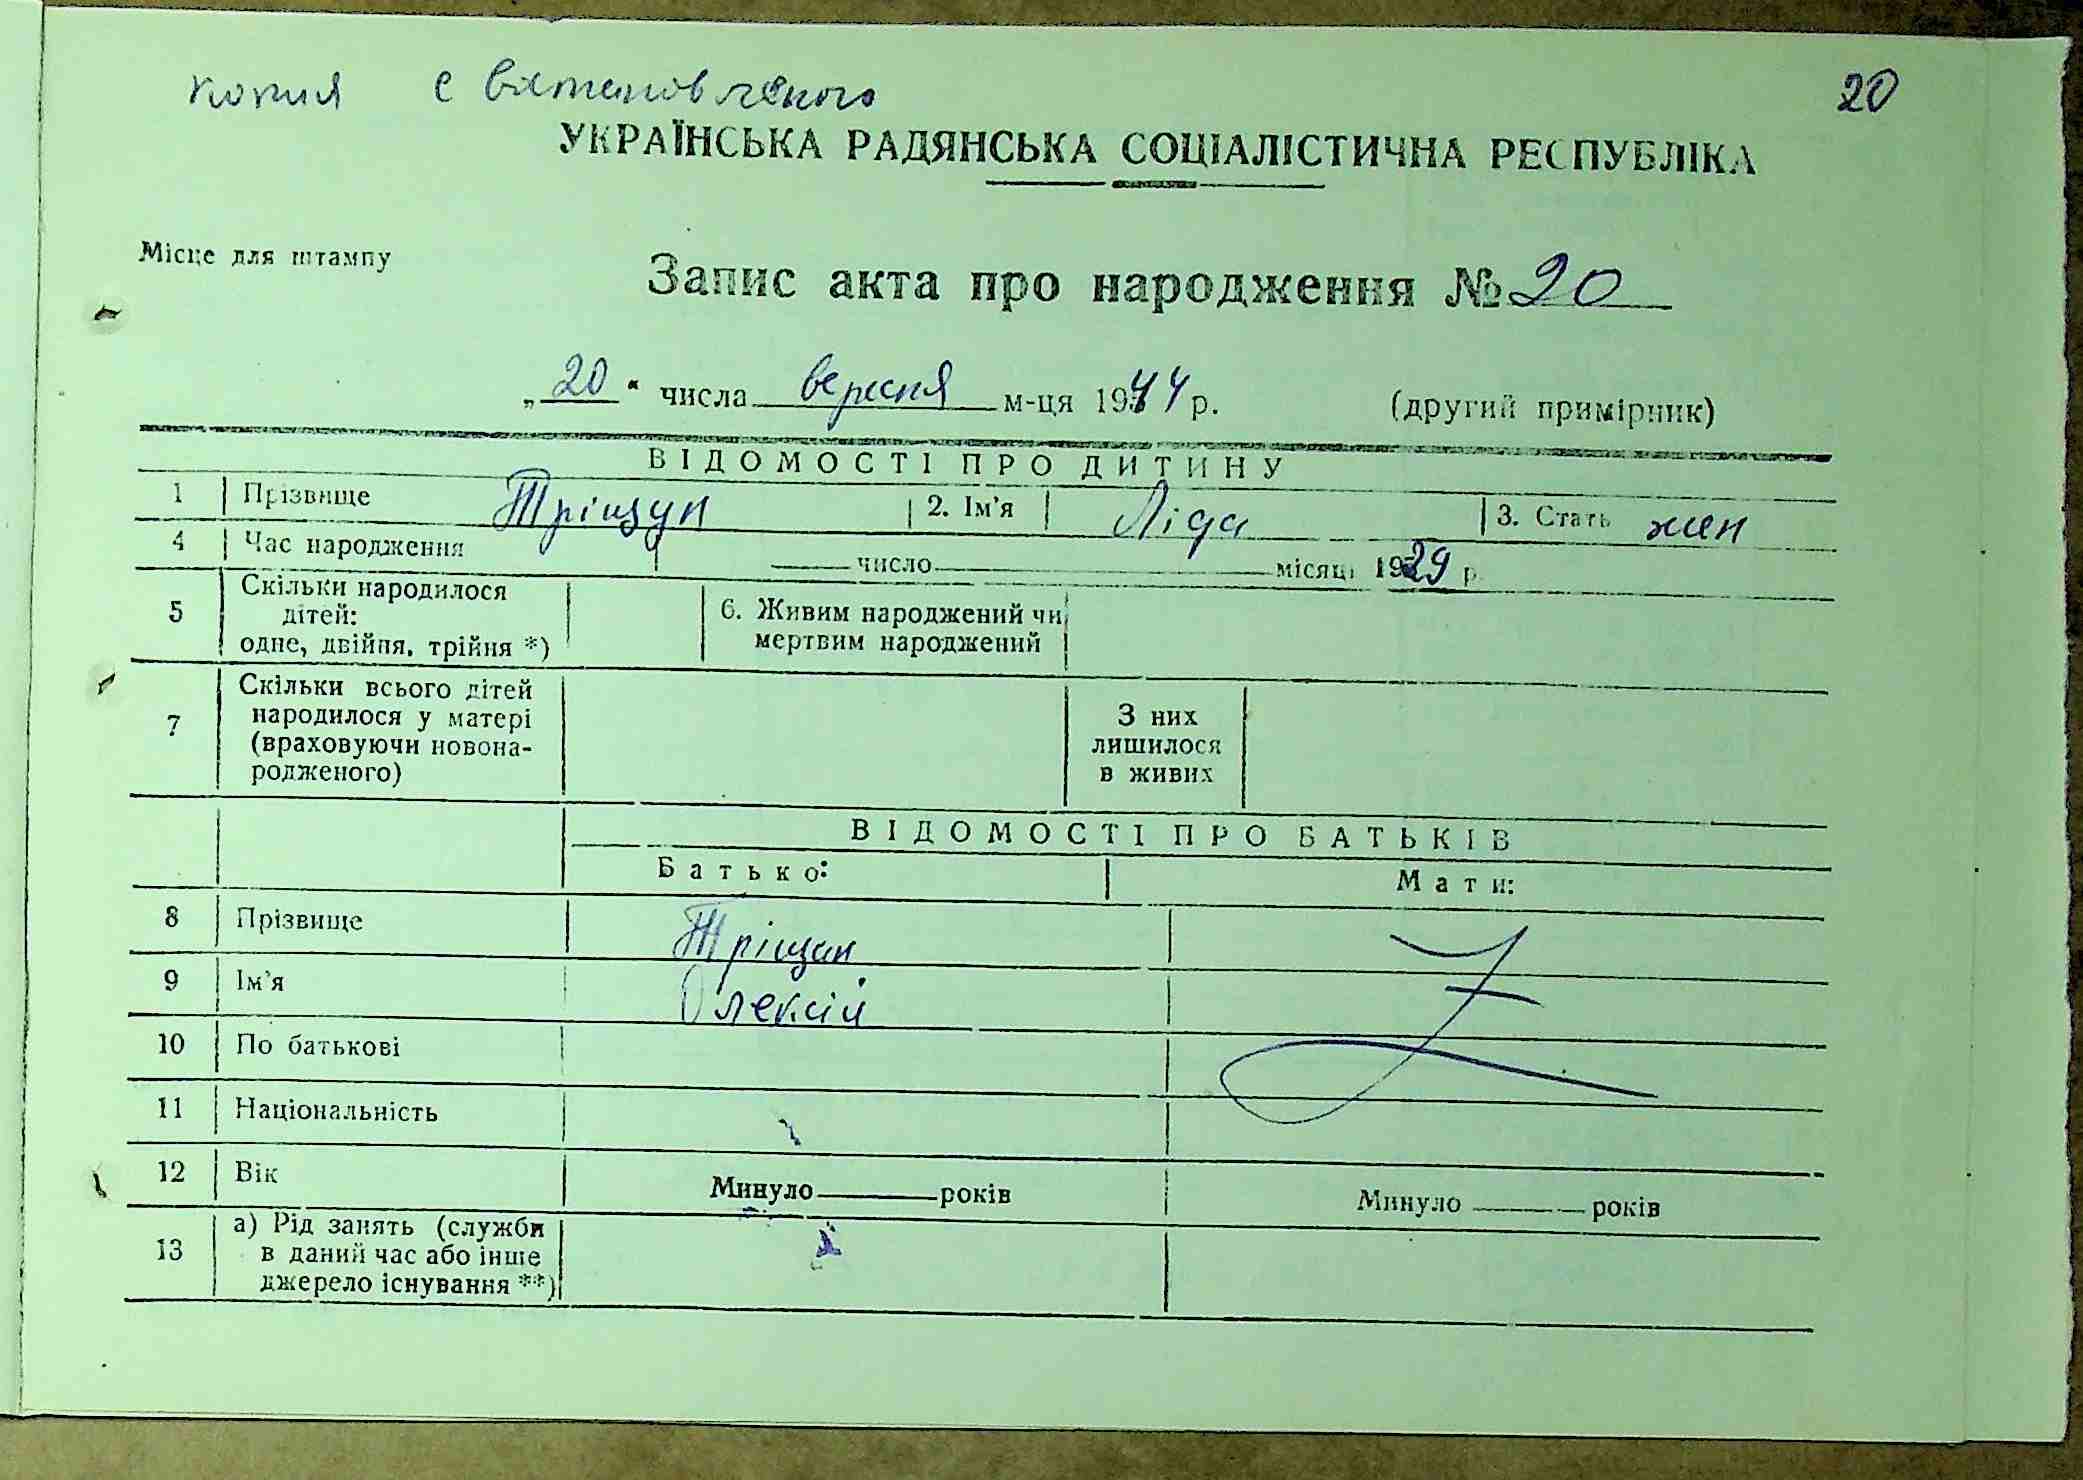 копия с вɪтановленого 20
УКРАЇНСЬКА РАДЯНСЬКА СОЦІАЛІСТИЧНА РЕСПУБЛІКА
Місце для штампу
Запис акта про народження № 20
„ 20 “ числа вересня м-ця 1944 р. (другий примірник)
ВІДОМОСТІ ПРО ДИТИНУ
1 Прізвище Тріщун 2. Ім'я Ліда 3. Стать жен
4 Час народження число місяця 1929 р.
5 Скільки народилося дітей: одне, двійня, трійня *) 6. Живим народжений чи мертвим народжений
7 Скільки всього дітей народилося у матері (враховуючи новонародженого) З них лишилося в живих
ВІДОМОСТІ ПРО БАТЬКІВ
Батько: Мати:
8 Прізвище Тріщун
9 Ім'я Олексій
10 По батькові
11 Національність
12 Вік Минуло років Минуло років
13 а) Рід занять (служби в даний час або інше джерело існування **)